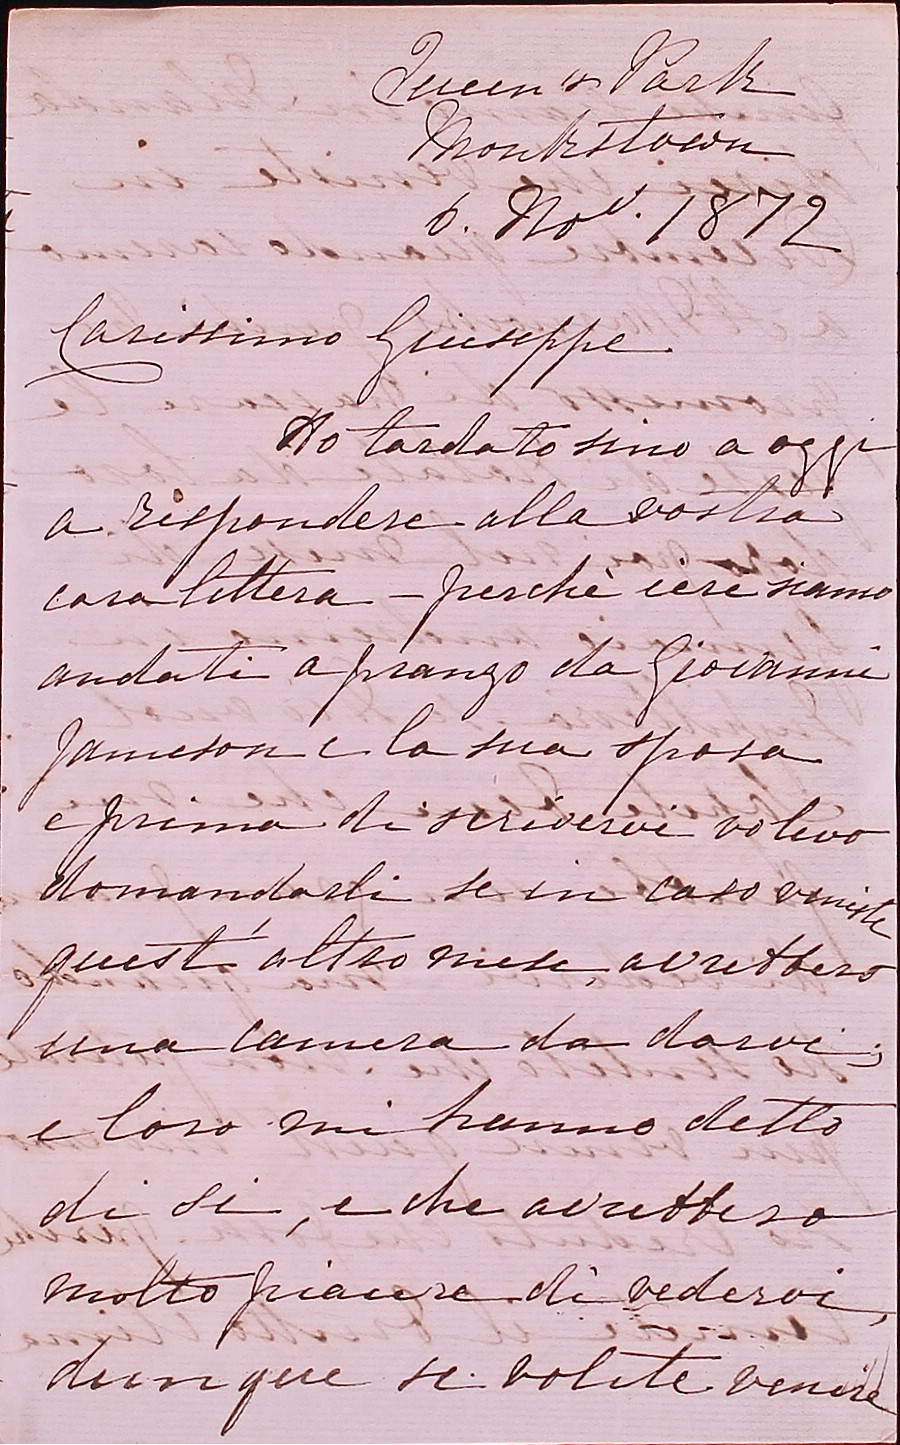 Queen's Park
Monkstown
6. Nov. 1872
Carissimo Giuseppe
Ho tardato sino a oggi
a rispondere alla vostra
cara lettera – perchè ieri siamo
andati a pranzo da Giovanni
Jameson e la sua sposa
e prima di scrivervi volevo
domandarli se in caso veniste
quest' altro mese, avrebbero
una camera da darvi;
e loro mi hanno detto
di si, e che avrebbero
molto piacere di vedervi,
dunque se volete venire